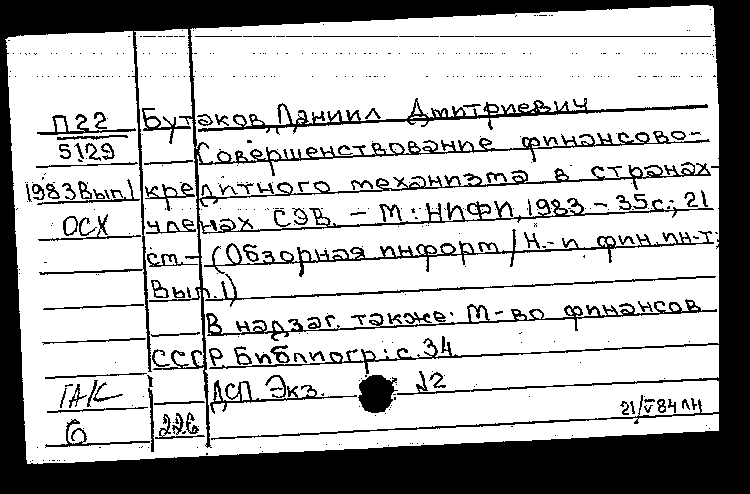 П22 Бутаков, Даниил Дмитриевич
5129 Совершенствование финансово-
1983 Вып.1 кредитного механизма в странах-
ОСХ членах СЭВ. – М.: НИФИ, 1983 – 35 с.; 21
см. – (Обзорная информ. / Н.-и фин. ин-т;
Вып. 1)
В надзаг. также: М-во финансов
СССР. Библиогр.: с. 34
ДСП. Экз. №2
6 226 21/V 84 ЛН